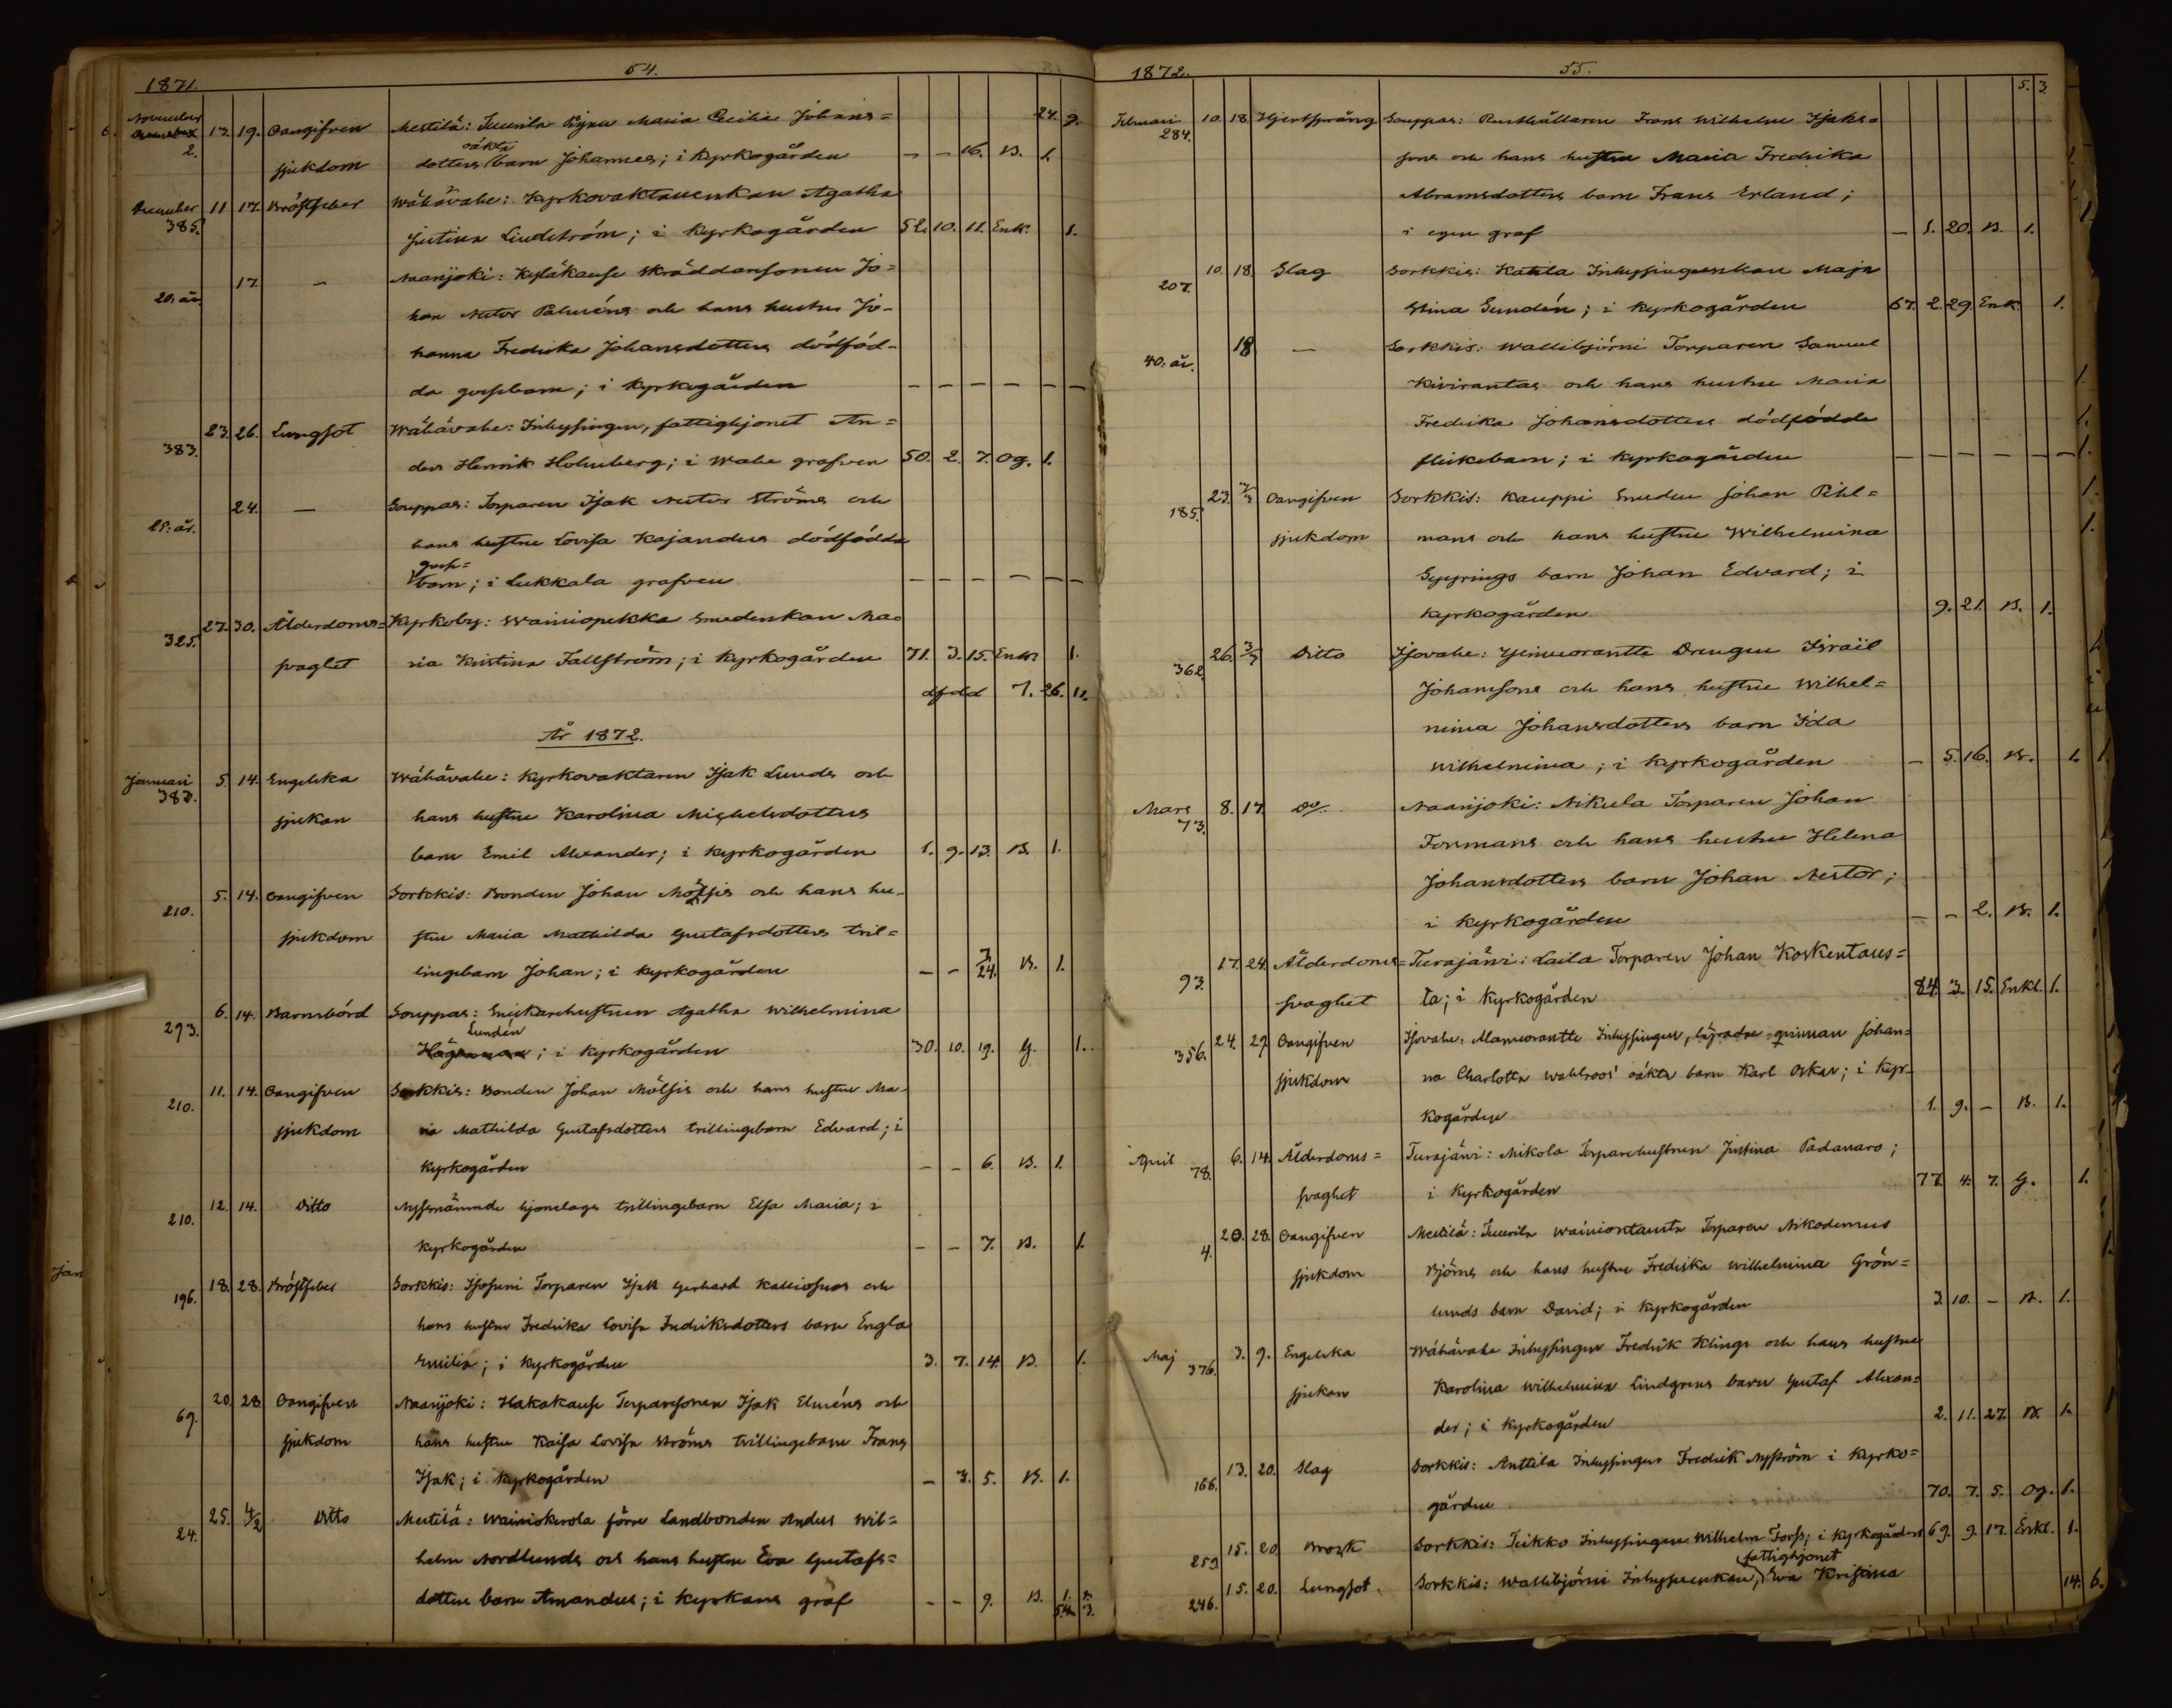 1871. 54.
24. 9.
November 13. 19. Oangifven Mestilä: Juunila Pigan Maria Cecilia Johans=
2. sjukdom dotters oäkta barn Johannes; i kyrkogården — — 16. B. 1.
December 11 17. Bröstfeber Wähävahe: Kyrkovaktareenkan Agatha
385. Justina Lindström; i kyrkogården 52. 10. 11. Enk. 1.
17. — Naarijoki: Kyläkause Skräddaresonen Jo=
20. år han Nestor Palméns och hans hustru Jo-
hanna Fredrika Johansdotters dödföd-
da gossebarn; i kyrkogården — — — — — —
23. 26. Lungsot Wähävahe: Inhysingen, fattighjonet An=
383. ders Henrik Holmberg; i Wahe grafven 50. 2. 7. Og. 1.
24. — Souppas: Torparen Isak Nestor Ströms och
25. år. hans hustru Lovisa Kajanders dödfödda
gosse=
barn; i Lukkala grafven — — — — — —
27. 30. Ålderdoms= Kyrkoby: Wainiopekka Smedenkan Ma=
325. svaghet ria Kristina Fallström; i kyrkogården 71. 3. 15. Enk. 1.
dfdd 7. 26. 11.
År 1872.
Januari 5. 14. Engelska Wähävahe: Kyrkovaktaren Isak Lunds och
382. sjukan hans hustru Karolina Michelsdotters
barn Emil Alexander; i kyrkogården 1. 9. 13. B. 1.
5. 14. Oangifven Sorkkis: Bonden Johan Mölsis och hans hu-
210. sjukdom stru Maria Mathilda Gustafsdotters tril=
lingebarn Johan; i kyrkogården — — 24. B. 1.
6. 14. Barnsbörd Souppas: Snickarehustrun Agatha Wilhelmina
293. Lundén; i kyrkogården 30. 10. 19. G. 1.
11. 14. Oangifven Sorkkis: Bonden Johan Mölsis och hans hustru Ma-
210. sjukdom ria Mathilda Gustafsdotters trillingebarn Edvard; i
kyrkogården — — 6. B. 1.
12. 14. Ditto Nyssnämnde hjonelags trillingebarn Elsa Maria; i
210. kyrkogården — — 7. B. 1.
18. 28. Bröstfeber Sorkkis: Torparen Isak Gerhard Kalliosuos och
196. hans hustru Fredrika Lovisa Fredriksdotters barn Engla
Emilia; i kyrkogården 3. 7. 14. B. 1.
20. 28. Oangifven Naarijoki: Hakakause Torparesonen Isak Elméns och
69. sjukdom hans hustru Kaisa Lovisa Ströms tvillingebarn Frans
Isak; i kyrkogården — 3. 5. B. 1.
25. 4/2 Ditto Mestilä: Wainiokerola förre Landbonden Anders Wil=
24. helm Nordlunds och hans hustru Eva Gustafs=
dotters barn Amandus; i kyrkans graf — — 9. B. 1.
5.4. 3.
1872. 55.
5. 3.
Februari 10. 18. Hjertsprång Souppas: Rusthållaren Frans Wilhelm Isaks=
284. sons och hans hustru Maria Fredrika
Abramsdotters barn Frans Erland;
i egen graf — 1. 20. B. 1.
10. 18. Slag Sorkkis: Katila Inhysingeenkan Maja
207. Stina Sundén; i kyrkogården 67. 2. 29. Enk. 1.
18 — Sorkkis: Wallibjörni Torparen Samuel
40. år. Kivirantas och hans hustru Maria
Fredrika Johansdotters dödfödda
flickebarn; i kyrkogården — — — — — —
23. 3/3 Oangifven Sorkkis: Kauppi Smeden Johan Pihl=
185. sjukdom mans och hans hustru Wilhelmina
barn Johan Edvard; i
kyrkogården 9. 21. B. 1.
26. 3/3 Ditto Isovahe: Drengen Israïl
362. Johanssons och hans hustru Wilhel=
mina Johansdotters barn Ida
Wilhelmina; i kyrkogården — 5. 16. B. 1.
Mars 8. 17. Do. Naarijoki: Nikula Torparen Johan
73. Formans och hans hustru Helena
Johansdotters barn Johan Nestor;
i kyrkogården — — 2. B. 1.
17. 24. Ålderdoms= Turajärvi: Laila Torparen Johan Koskentaus=
93. svaghet ta; i kyrkogården 84. 3. 15. Enkl. 1.
24. 29. Oangifven Isovahe: Inhysingen, qvinnan Johan=
356. sjukdom na Charlotta Wahlroos' oäkta barn Karl Oskar; i kyr-
kogården 1. 9. — B. 1.
April 6. 14. Ålderdoms= Turajärvi: Mikola Torparehustrun Justina Padanaro;
78. svaghet i kyrkogården 77. 4. 7. G. 1.
20. 28. Oangifven Mestilä: Juunila Torparen Nikodemus
4. sjukdom Björns och hans hustru Fredrika Wilhelmina Grön=
lunds barn David; i kyrkogården 3. 10. — B. 1.
Maj 3. 9. Engelska Wähävahe Inhysingen Fredrik Klings och hans hustru
376. sjukan Karolina Wilhelmina Lindgrens barn Gustaf Alexan=
der; i kyrkogården 2. 11. 27. B. 1.
13. 20. Slag Sorkkis: Anttila Inhysingen Fredrik Nyström i kyrko=
166. gården 70. 7. 5. Og. 1.
15. 20. Bråck Sorkkis: Teikko Inhysingen Wilhelm Forss; i kyrkogården 69. 9. 17. Enkl. 1.
259
fattighjonet
15. 20. Lungsot. Sorkkis: Wallibjörni Inhysesenkan, Eva Kristina
246. 14. 6.
Jan